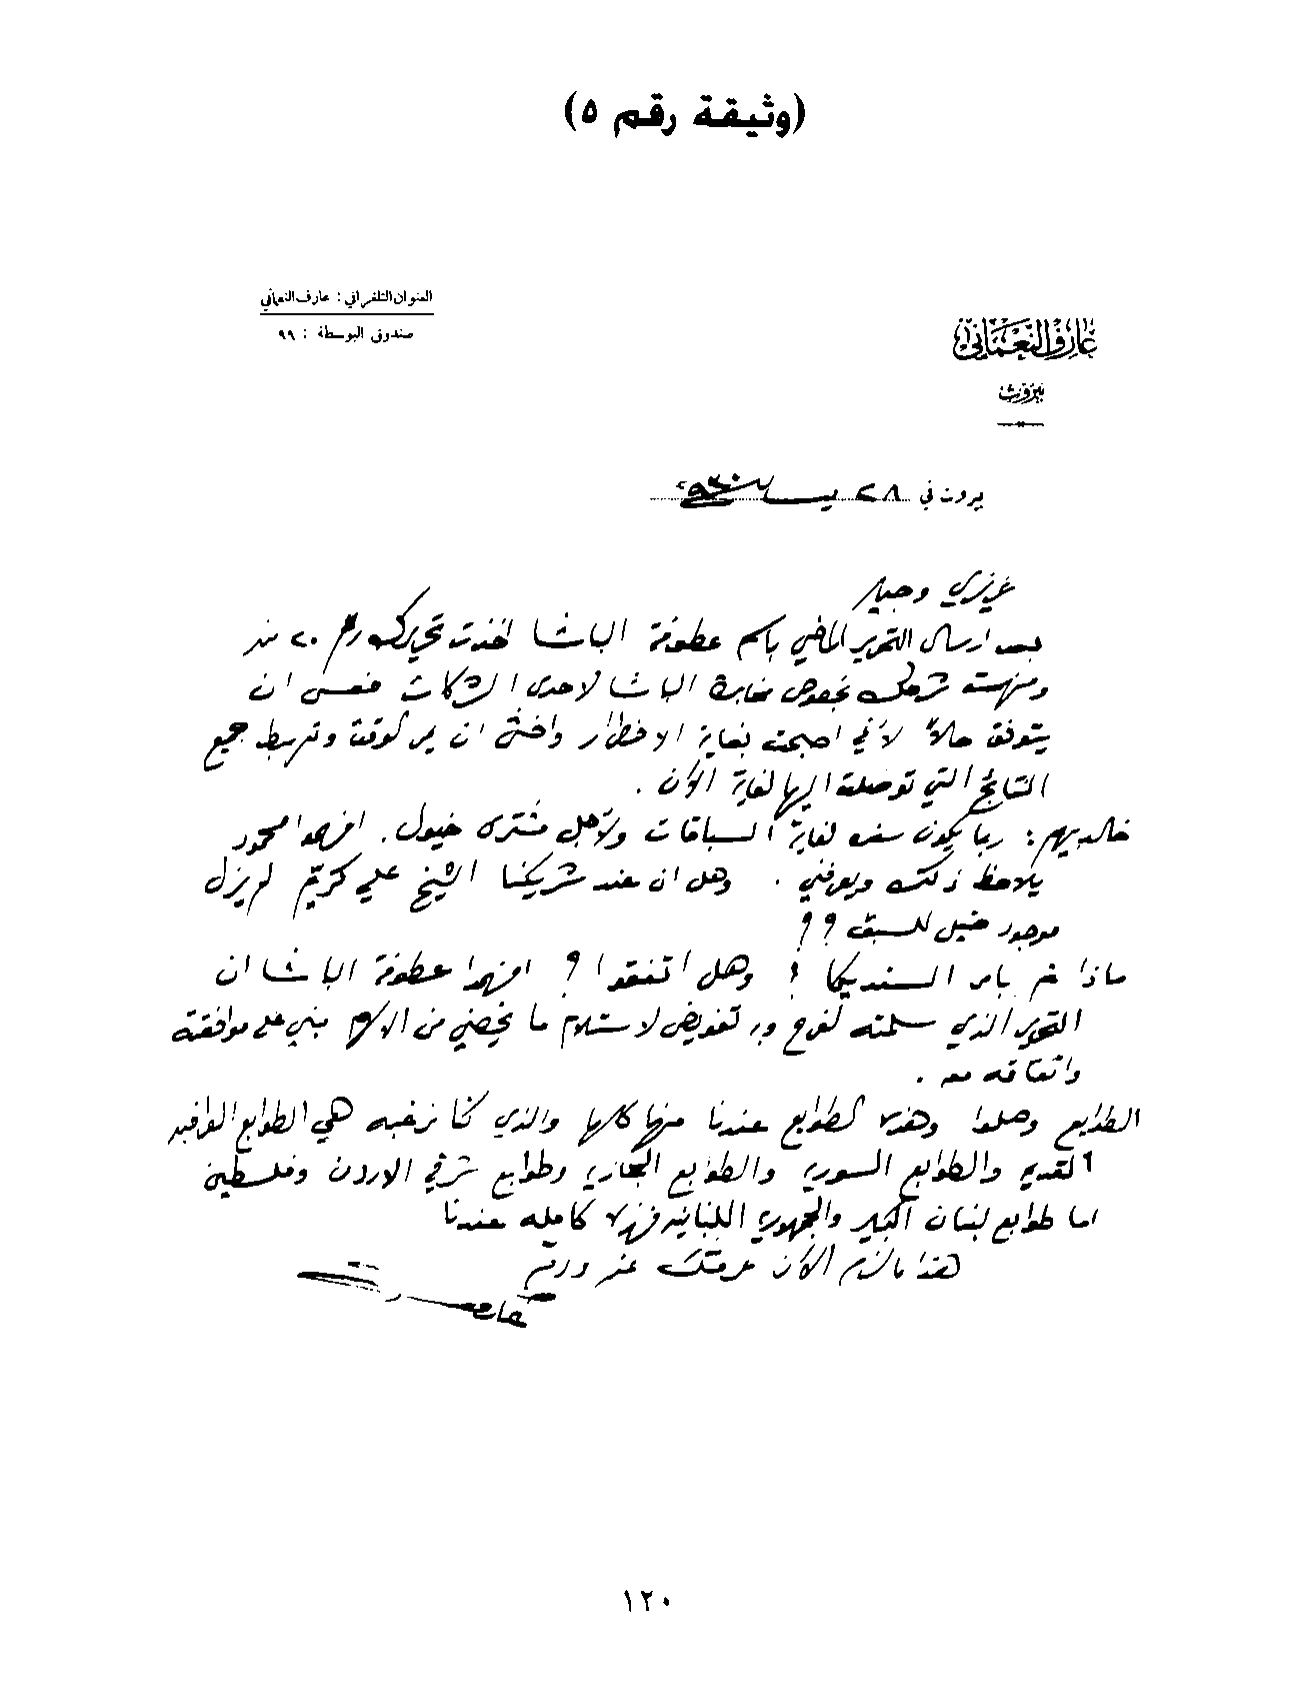 (وثيقة رقم ٥)
العنوان التلغرافي : عارف النعماني
صندوق البوسطة : ٩٩
عارف النعماني
بيروت
بيروت في ٢٨ نيسان ٩٣٠
عزيزي وجيه
بعد ارسال التحرير الماضي باسم عطوفة الباشا اخذت تحريرك رقم ٢٠ منه
وفهمت شرحك بخصوص مخابرة الباشا لاحدى الشركات فعسى ان
يتوفق حالاً لأني اصبحت بغاية الاضطرار واخشى ان يمر الوقت جميع
النتائج التي توصلت اليها لغاية الآن .
خالد بيهم : ربما يكون سفره لغاية السباقات ولأجل مشترى خيول . افهموا محمود
يلاحظ ذلك ويعرفني . وهل ان عند شريكنا الشيخ علي كريّم لم يزل
موجود خيل للسبق ؟ ؟
ماذا تم بامر السنديكا ؟ وهل اتفقوا ؟ افهموا عطوفة الباشا ان
التحرير الذي سلمته لفرح تفويض لاستلام ما يخصني من الاسهم مبني على موافقته
واتفاقه معه .
الطوابع وصلوا وهذه الطوابع عندنا منها كلها والذي كنا نرغبه هي الطوابع العراقيه
القديمه والطوابع السوريه والطوابع الحجازيه وطوابع شرقي الاردن وفلسطين
اما طوابع لبنان الكبير والجمهوريه اللبنانيه فهذه كامله عندنا
هذا ما لزم الآن عرفتك عنه ودمتم
عارف
١٢٠